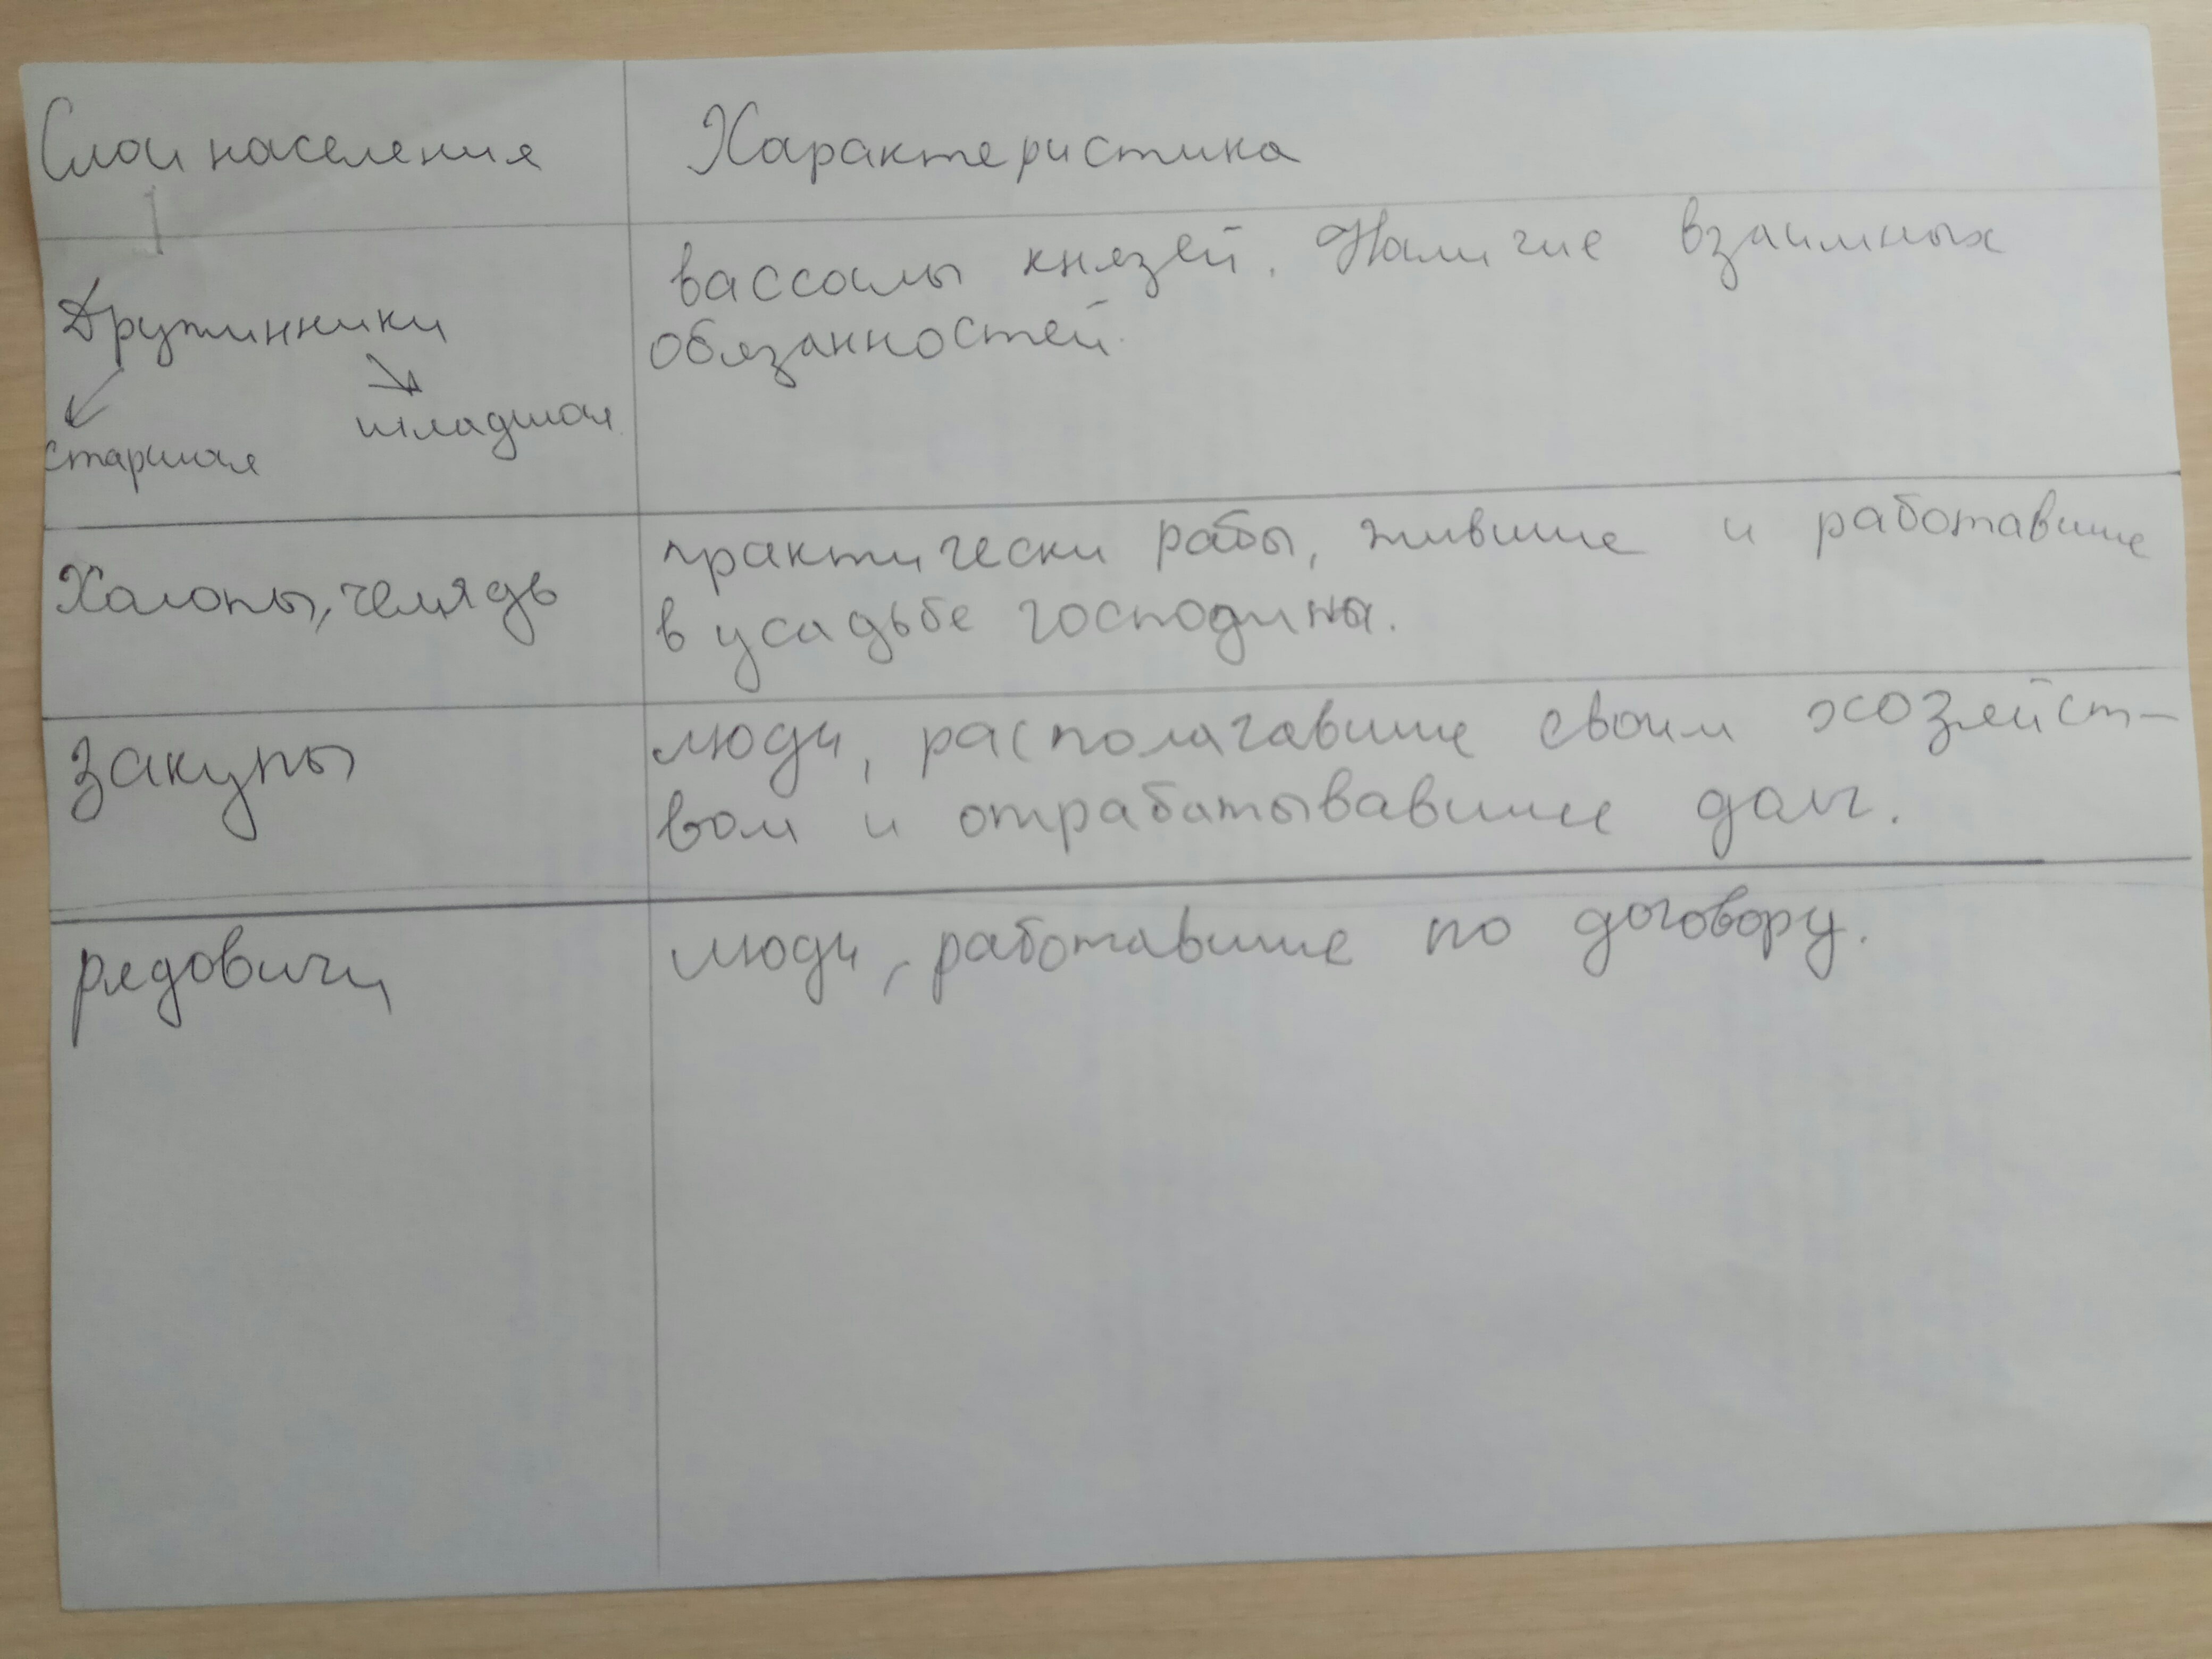 Слои населения
Характеристика
Дружинники
старшая
младшая
вассалы князей. Наличие взаимных
обязанностей.
Холопы, челядь
практически рабы, жившие и работавшие
в усадьбе господина.
Закупы
люди, располагавшие своим хозяйст-
вом и отрабатывавшие долг.
рядовичи
люди, работавшие по договору.